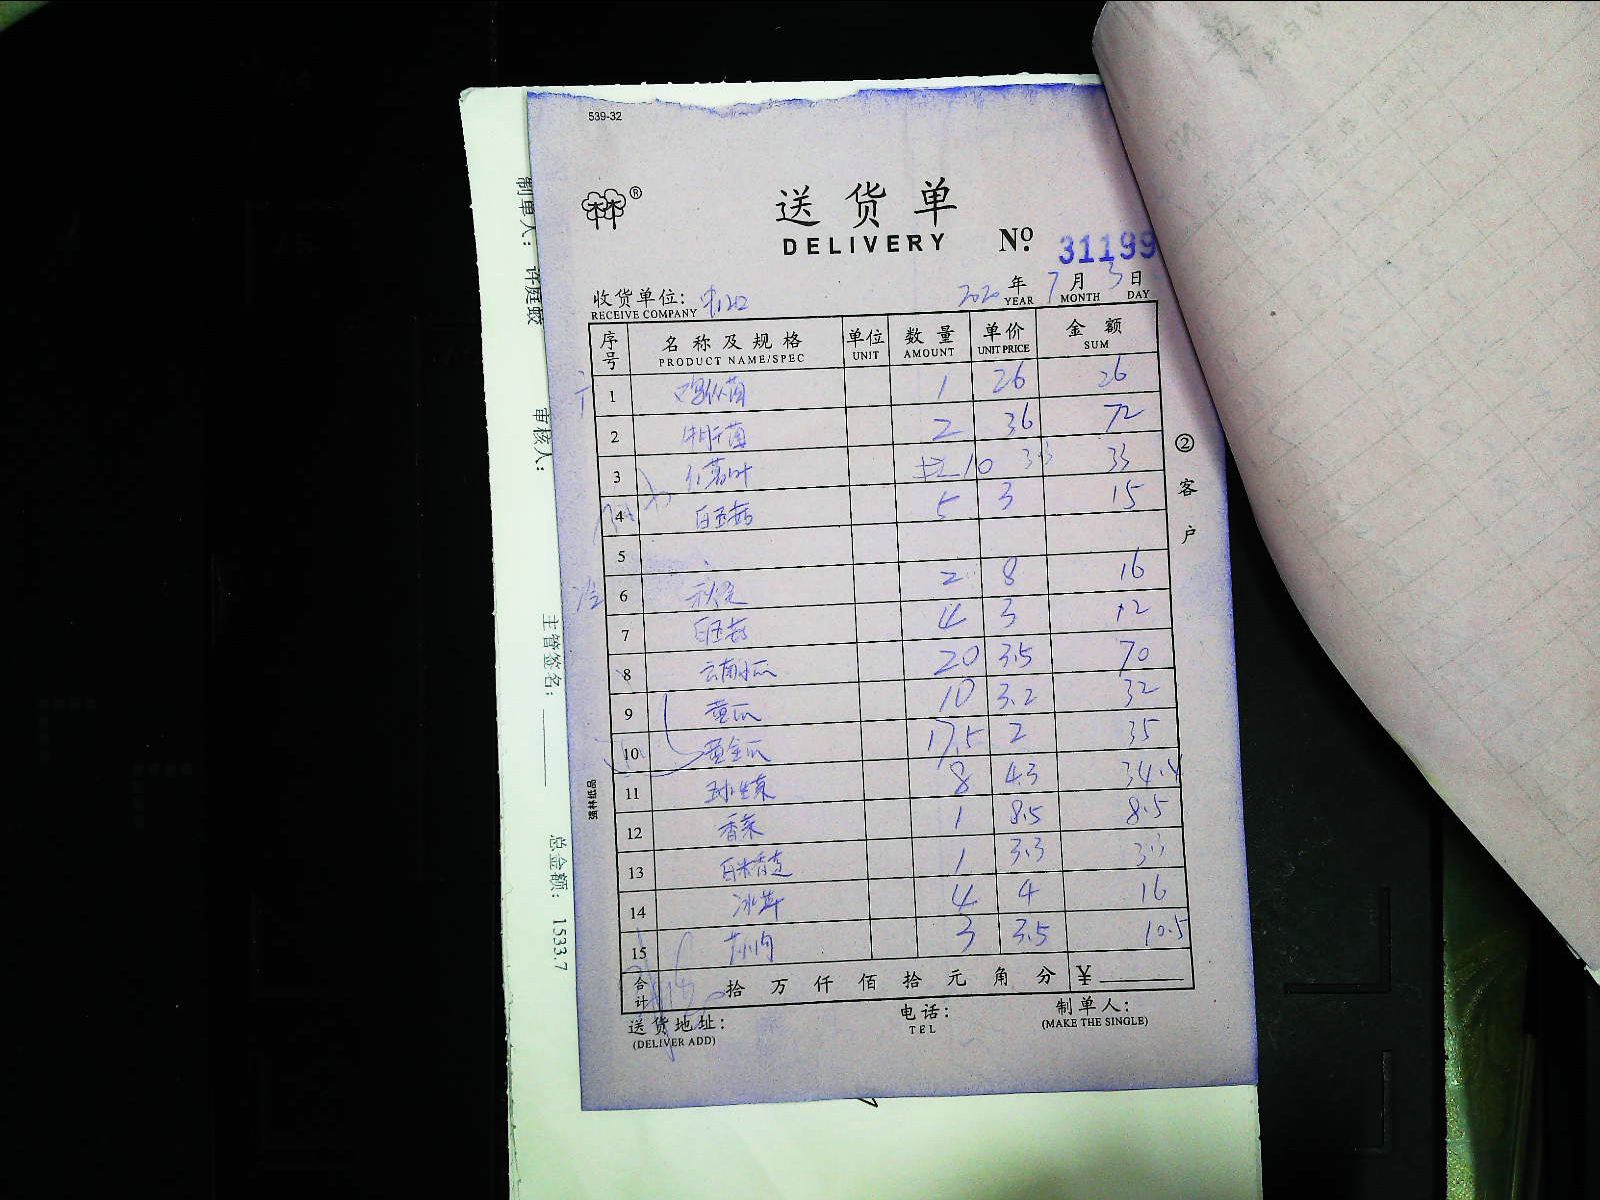 539-32
®
送货单
DELIVERY No. 31199
收货单位: 2020 年 7 月 3 日
RECEIVE COMPANY YEAR MONTH DAY
序号 名称及规格 单位 数量 单价 金额
PRODUCT NAME/SPEC UNIT AMOUNT UNIT PRICE SUM
1 鸡纵菌 1 26 26
2 牛肝菌 2 36 72
3 红薯叶 10 3.3 33
4 白玉菇 5 3 15
5
6 秋葵 2 8 16
7 白玉菇 4 3 12
8 云南小瓜 20 3.5 70
9 黄瓜 10 3.2 32
10 黄金瓜 17.5 2 35
11 球生菜 8 4.3 34.4
12 香菜 1 8.5 8.5
13 1 3.3 3.3
14 冰草 4 4 16
15 3 3.5 10.5
合计 拾 万 仟 佰 拾 元 角 分 ¥
送货地址: 电话: 制单人:
(DELIVER ADD) TEL (MAKE THE SINGLE)
②客户
强林纸品
制单人: 许庭蛟
审核人:
主管签名:
总金额: 1533.7